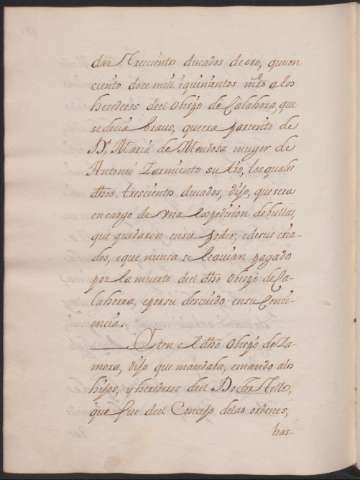 dar Trescientos ducados de oro, que son
ciento doce mil i quinientos mrs. a los
herederos del Obispo de Calahorra, que
se decia bravo, que era pariente de
Dª. Maria de Mendosa muger de
Antonio Sarmiento su tio, los quales
dhos. trescientos ducados, dijo, que eran
en cargo de una Expedicion de bullas,
que quedaron en su poder, e de sus cria-
dos, e que nunca se le avian pagado
por la muerte del dho Obispo de Ca-
lahorra, e por su descuido en su Conci-
encia.
Iten el dho Obispo de Za-
mora, dijo que mandava, e mando a los
hijos, y herederos del Doctor Tello,
que fue del Consejo de las ordenes,